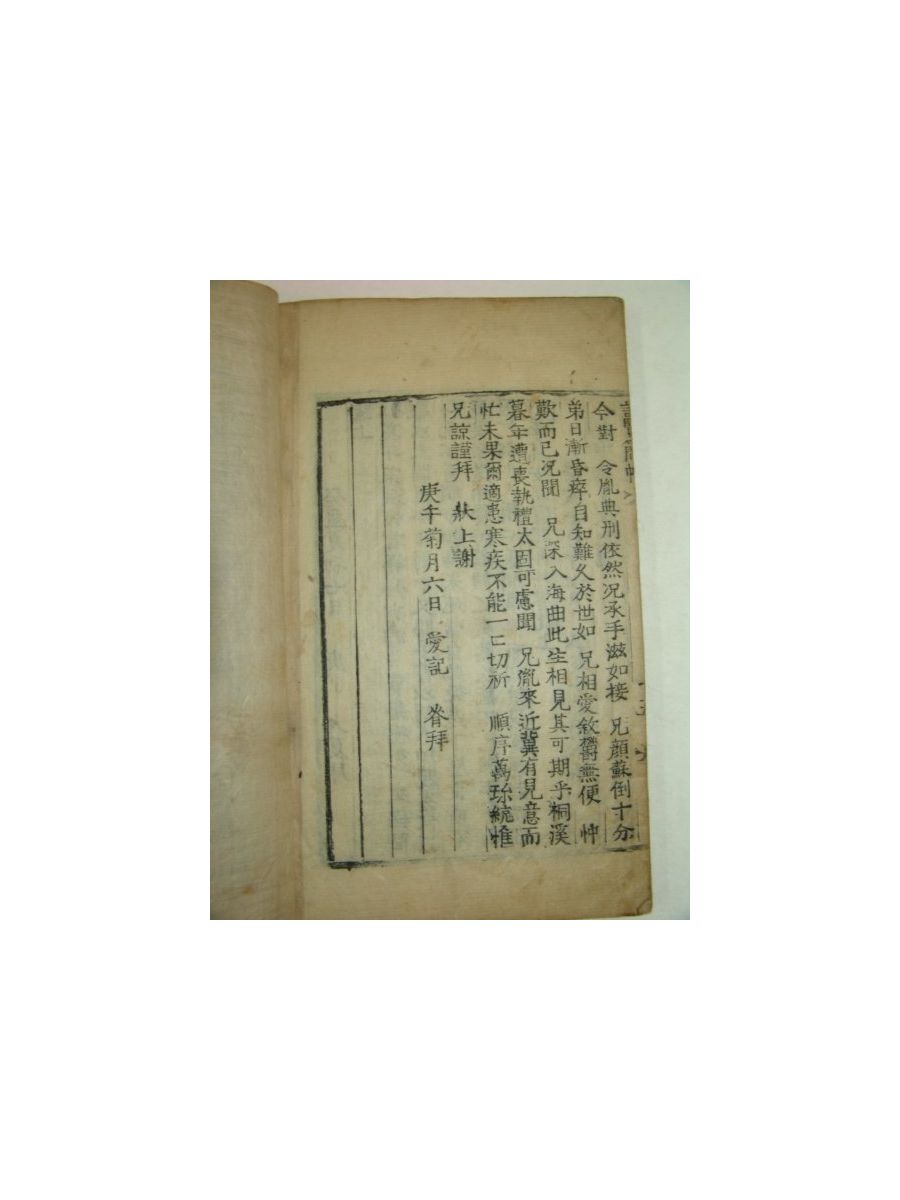 令對 令胤典刑依然況承手滋如接 兄顔蘇倒十分
弟日漸昏瘁自知難久於世如 兄相愛敘鬱無便 忡
歎而已況聞 兄深入海曲此生相見其可期乎桐溪
暮年遭喪執禮太固可慮聞 兄胤來近冀有見意而
忙未果爾適患寒疾不能一〻切祈 順序萬珎統惟
兄諒謹拜 狀上謝
庚午菊月六日 愛記 眷拜